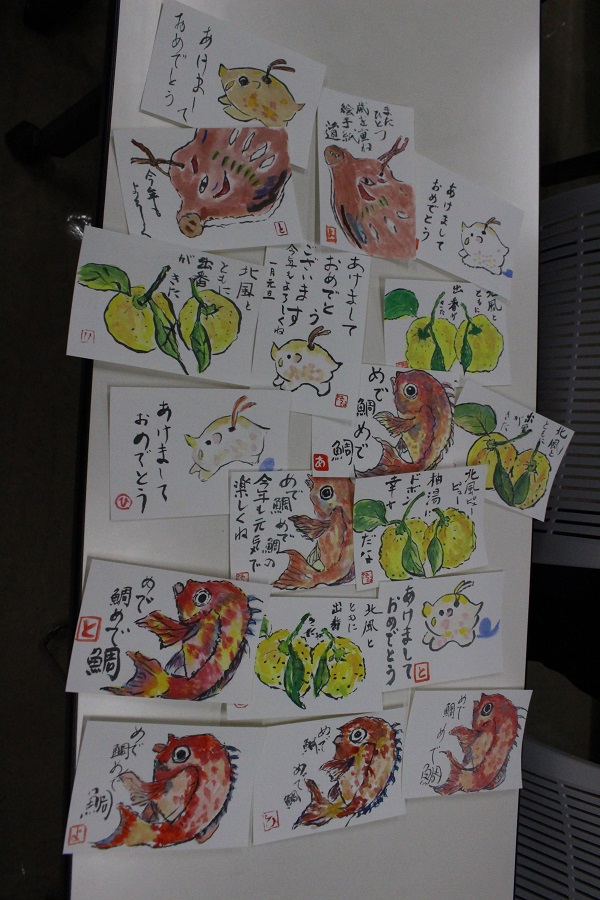 あけまして
おめでとう
今年も
よろしく
と
またひとつ
歳を重ね
絵手紙
道
あけまして
おめでとう
北風と
ともに
出番
が
きた
あけまして
おめでとう
ございます
今年もよろしくね
一月元旦
北風と
ともに
出番が
きた
めで
鯛めで
鯛
あ
北風と
ともに
出番
が
きた
あけまして
おめでとう
ひ
めで鯛めで
鯛の
今年も元気で
楽しくね
北風ピュー
ピュー
柚湯に
ドボン
幸せだな
めで
鯛めで
鯛
と
北風と
ともに
出番
が
きた
あけまして
おめでとう
と
めで
鯛めで
鯛
よ
めで
鯛
めで
鯛
めで
鯛
めで
鯛